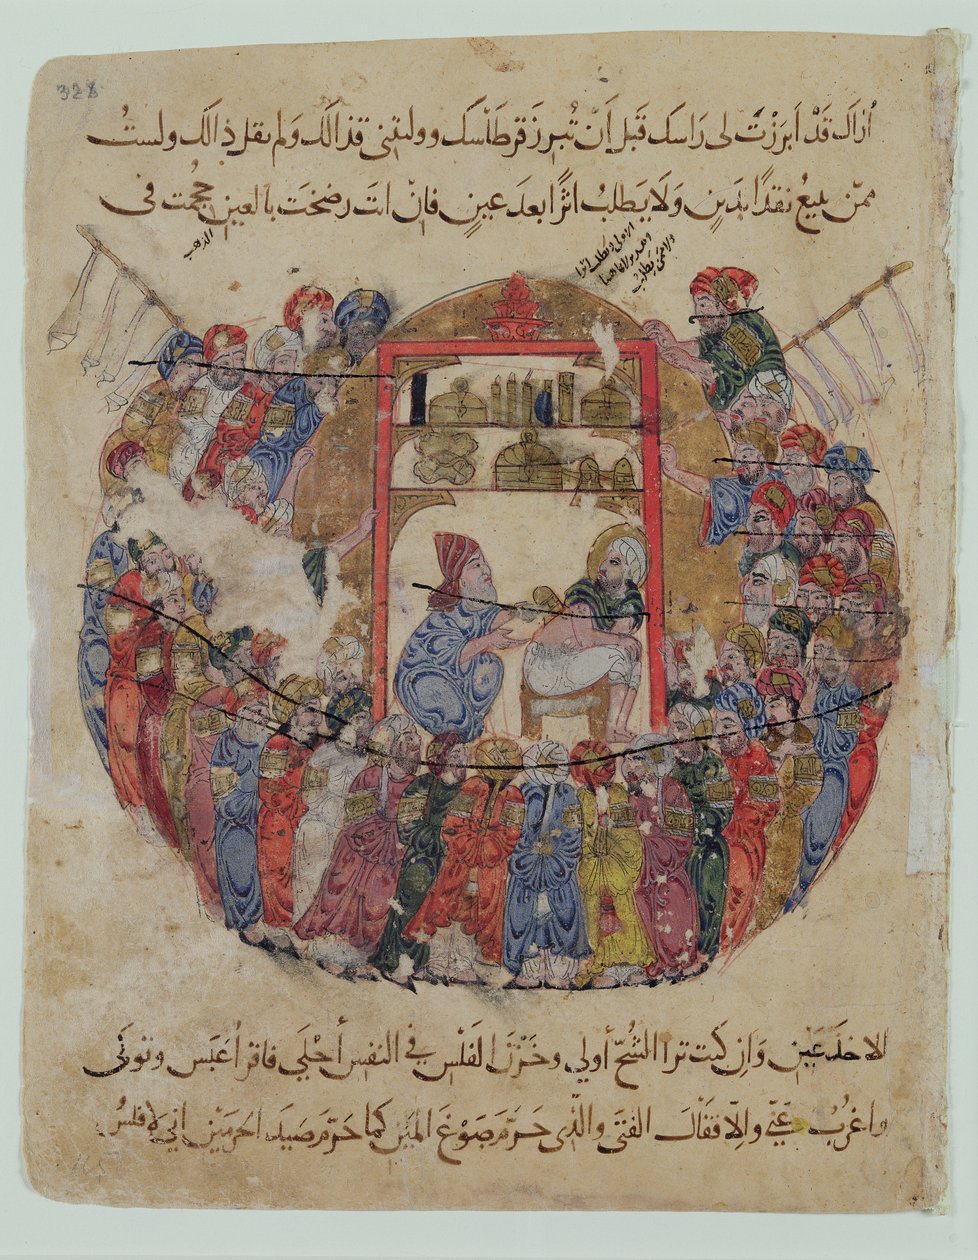 328
أراك قد أبرزت لي راسك قبل أن تبرز قرطاسك وولیتني قذالك ولم تقل ذالك ولست
ممن يبيع نقدا بدين ولا يطلب اثرا بعد عين فان انت رضخت بالعين حجمت في
الاخدعين وان كنت ترا الشح أولى وخزن الفلس في النفس أحلى فاقرا عبس وتولى
واغرب عني والا فقال الفتى والذى حرم صوغ المين كما حرم صيد الحرمين اني لافلس